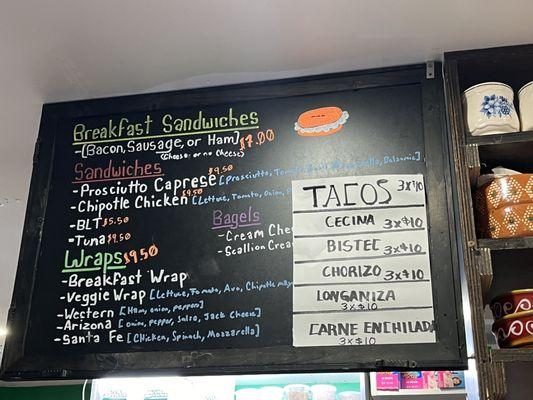 Breakfast Sandwiches
[Bacon, Sausage, or Ham] $7.00
(Cheese or no Cheese)
Sandwiches
-Prosciutto Caprese $9.50 [Prosciutto, Mozzarella, Balsamic]
-Chipotle Chicken $9.50 [Lettuce, Tomato, Onion,
-BLT $5.50
-Tuna $9.50
Bagels
-Cream Chee
-Scallion Crea
Wraps $9.50
-Breakfast Wrap
-Veggie Wrap [Lettuce, Tomato, Avo, Chipotle may
-Western [Ham, onion, pepper]
-Arizona [onion, pepper, Salsa, Jack Cheese]
-Santa Fe [Chicken, Spinach, Mozzarella]
TACOS 3x$10
CECINA 3x$10
BISTEC 3x$10
CHORIZO 3x$10
LONGANIZA
3x$10
CARNE ENCHILADA
3x$10